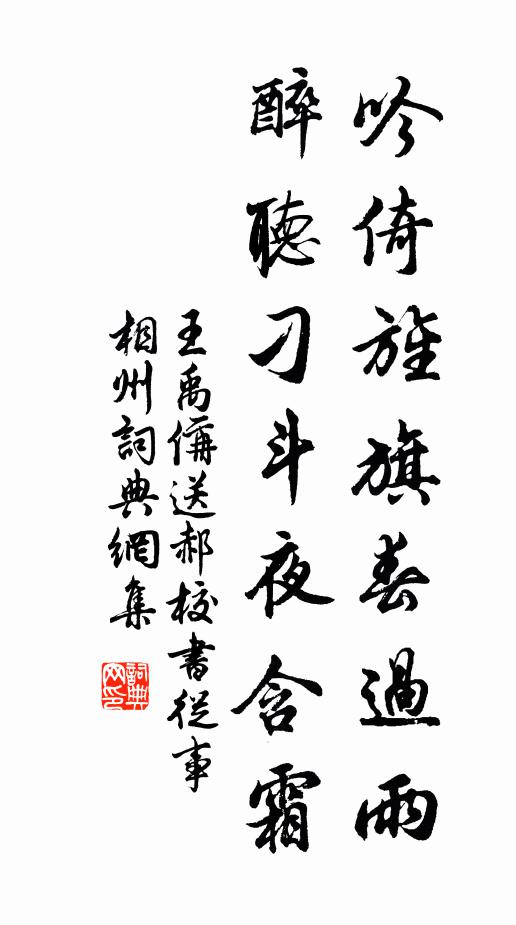 吟倚旌旗春過雨
醉聽刁斗夜含霜
王禹偁送郝校書從事
相州詞典網集
詞典网印